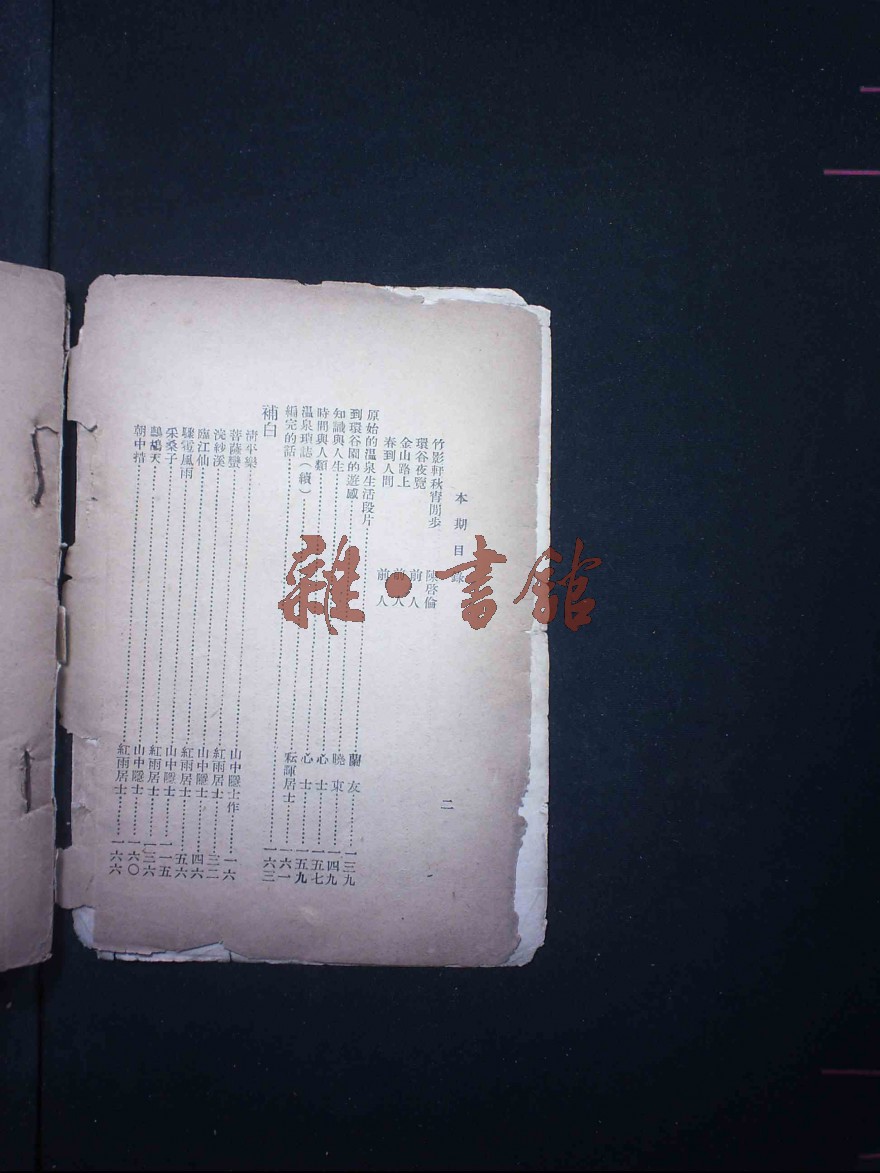 本期目錄
竹影軒秋宵閒步 陳啓倫
環谷夜覽 前人
金山路上 前人
春到人間 前人
原始的溫泉生活段片……蘭友……一三九
到環谷園的遊感……曉東……一四九
知識與人生……心士……一五七
時間與人類……心士……一五九
溫泉瑣誌（續）……居士……一六一
編完的話……一六三
補白
清平樂……山中隱士作……一六
菩薩蠻……紅雨居士……三二
浣紗溪……山中隱士……四六
臨江仙……紅雨居士……五六
驟雹風雨……山中隱士……一一五
采桑子……紅雨居士……一三六
鷓鴣天……山中隱士……一六〇
朝中措……紅雨居士……一六六
二
雜·書館